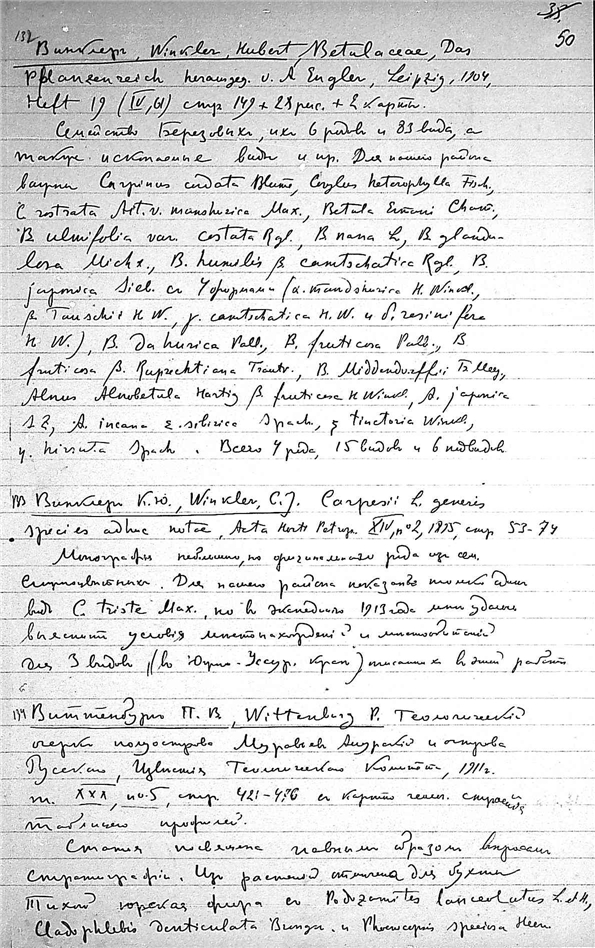 35
50
132 Винклер, Winkler, Hubert, Betulaceae, Das
Pflanzenreich herausgeg. v. A Engler, Leipzig, 1904,
Heft 19 (IV, 61) стр 149 + 28 рис. + 2 карты.
Семейство Березовых, их 6 родов и 83 вида, а
также ископаемые виды и пр. Для нашего района
важны Carpinus cordata Blume, Corylus heterophylla Fisch.,
C rostrata Ait. v. manshurica Max., Betula Ermani Cham.,
B ulmifolia var. costata Rgl., B nana L, B glandu-
losa Michx., B. humilis β camtschatica Rgl., B.
japonica Sieb. с 4 формами (α. mandshurica H. Winkl.,
β Tauschii H W., γ. camtschatica H.W. и δ. resinifera
H W.), B. dahurica Pall., B. fruticosa Pall., B
fruticosa β. Ruprechtiana Trautv., B. Middendorffii Tr Mey,
Alnus Alnobetula Hartig β fruticosa H Winkl, A. japonica
S Z, A. incana ε. sibirica Spach, ξ tinctoria Winkl,
η. hirsuta Spach. Всего 4 рода, 15 видов и 6 подвидов
133 Винклер К.Ю., Winkler, C.J. Carpesii L. generis
species adhuc notae, Acta Horti Petrop. XIV, no 2, 1895, стр 53-74
Монография небольшого, но оригинального рода из сем.
Сложноцветных. Для нашего района показан только один
вид C. triste Max., но в экспедицию 1913 года мне удалось
выяснить условия местонахождений и местообитаний
для 3 видов (в Южно-Уссур. крае) описанных в этой работе
134 Виттенбург П. В, Wittenburg P. Геологический
очерк полуострова Муравьев Амурский и острова
Русского, Известия Геологического Комитета, 1911 г.
т. XXX, no 5, стр. 421-476 с карто геол. строения
таблицею профилей.
Статья посвящена главным образом вопросам
стратиграфии. Из растений отмечена для бухты
Тихой юрская флора с Podozamites lanceolatus L. et H,
Cladophlebis denticulata Brongn. и Phoenicopsis speciosa Heer